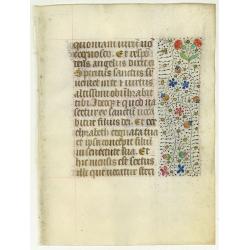 quoniam virum no
cognosco. Et respo
dens angelus dixit ei
Spiritus sanctus su
veniet in te et virtus
altissimi obumbrabit
tibi. Ideoque et quod na
scetur ex te sanctum voca
bitur filius dei. Et ecce
elizabeth cognata tua
et ipsa concepit filiū
in senectute sua. Et
hic mensis est sextus
illi que vocatur steri